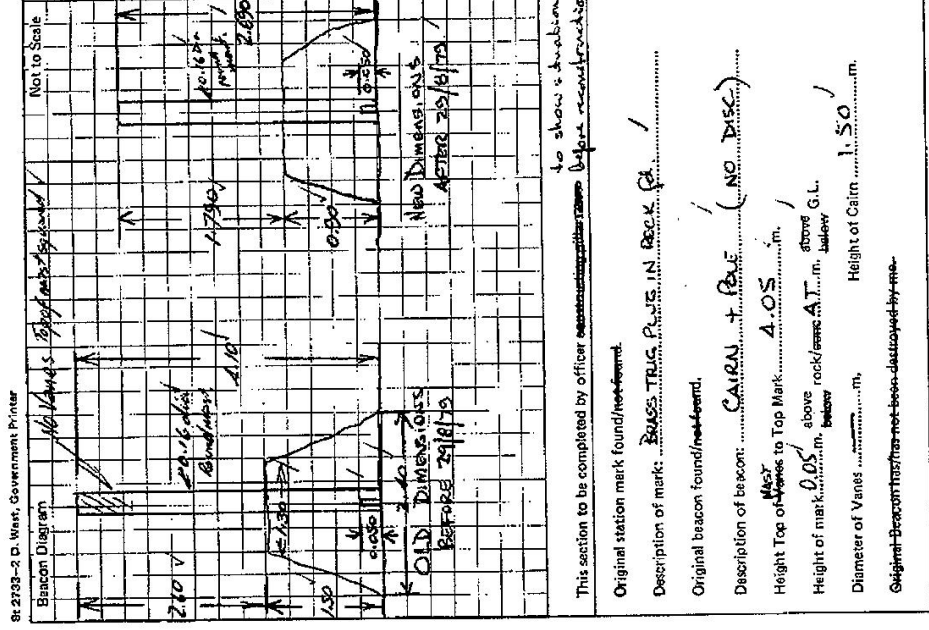 St 2733–2 D. West, Government Printer
Beacon Diagram
Not to Scale
No Vanes Top of mast squared ✓
2.60 ✓
1.50
1.30
0.16 dia
Round mast
4.10 ✓
0.050
2.40
OLD DIMENSIONS
BEFORE 29/8/79
1.790 ✓
0.90
0.16 Dia
round
mast.
2.690
0.050
NEW DIMENSIONS
AFTER 29/8/79 ✓
to show situation
This section to be completed by officer constructing pillar before reconstruction
Original station mark found/not found.
Description of mark: BRASS TRIG PLUG IN ROCK fd. ✓
Original beacon found/not found.
Description of beacon: CAIRN + POLE (NO DISC) ✓
MAST
Height Top of Vanes to Top Mark 4.05 m. ✓
Height of mark 0.05 m. above below rock/conc AT m. above below G.L.
Diameter of Vanes — m. Height of Cairn 1.50 m. ✓
Original Beacon has/has not been destroyed by me.